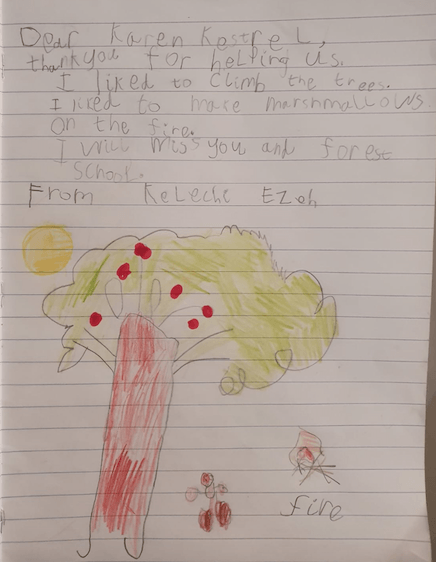 Dear Karen Kostrel,
thankyou for helping us.
I liked to climb the trees.
I liked to make marshmallows
on the fire.
I will miss you and forest
school.
From Kelechi Ezeh
fire